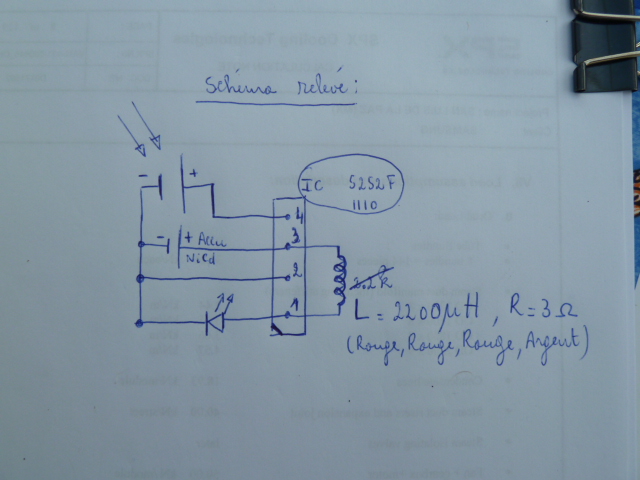 Schéma relevé :
IC 5252F
1110
- +
4
- + Accu
NiCd
3
2
2.2k
1
L = 2200µH , R = 3Ω
(Rouge, Rouge, Rouge, Argent)